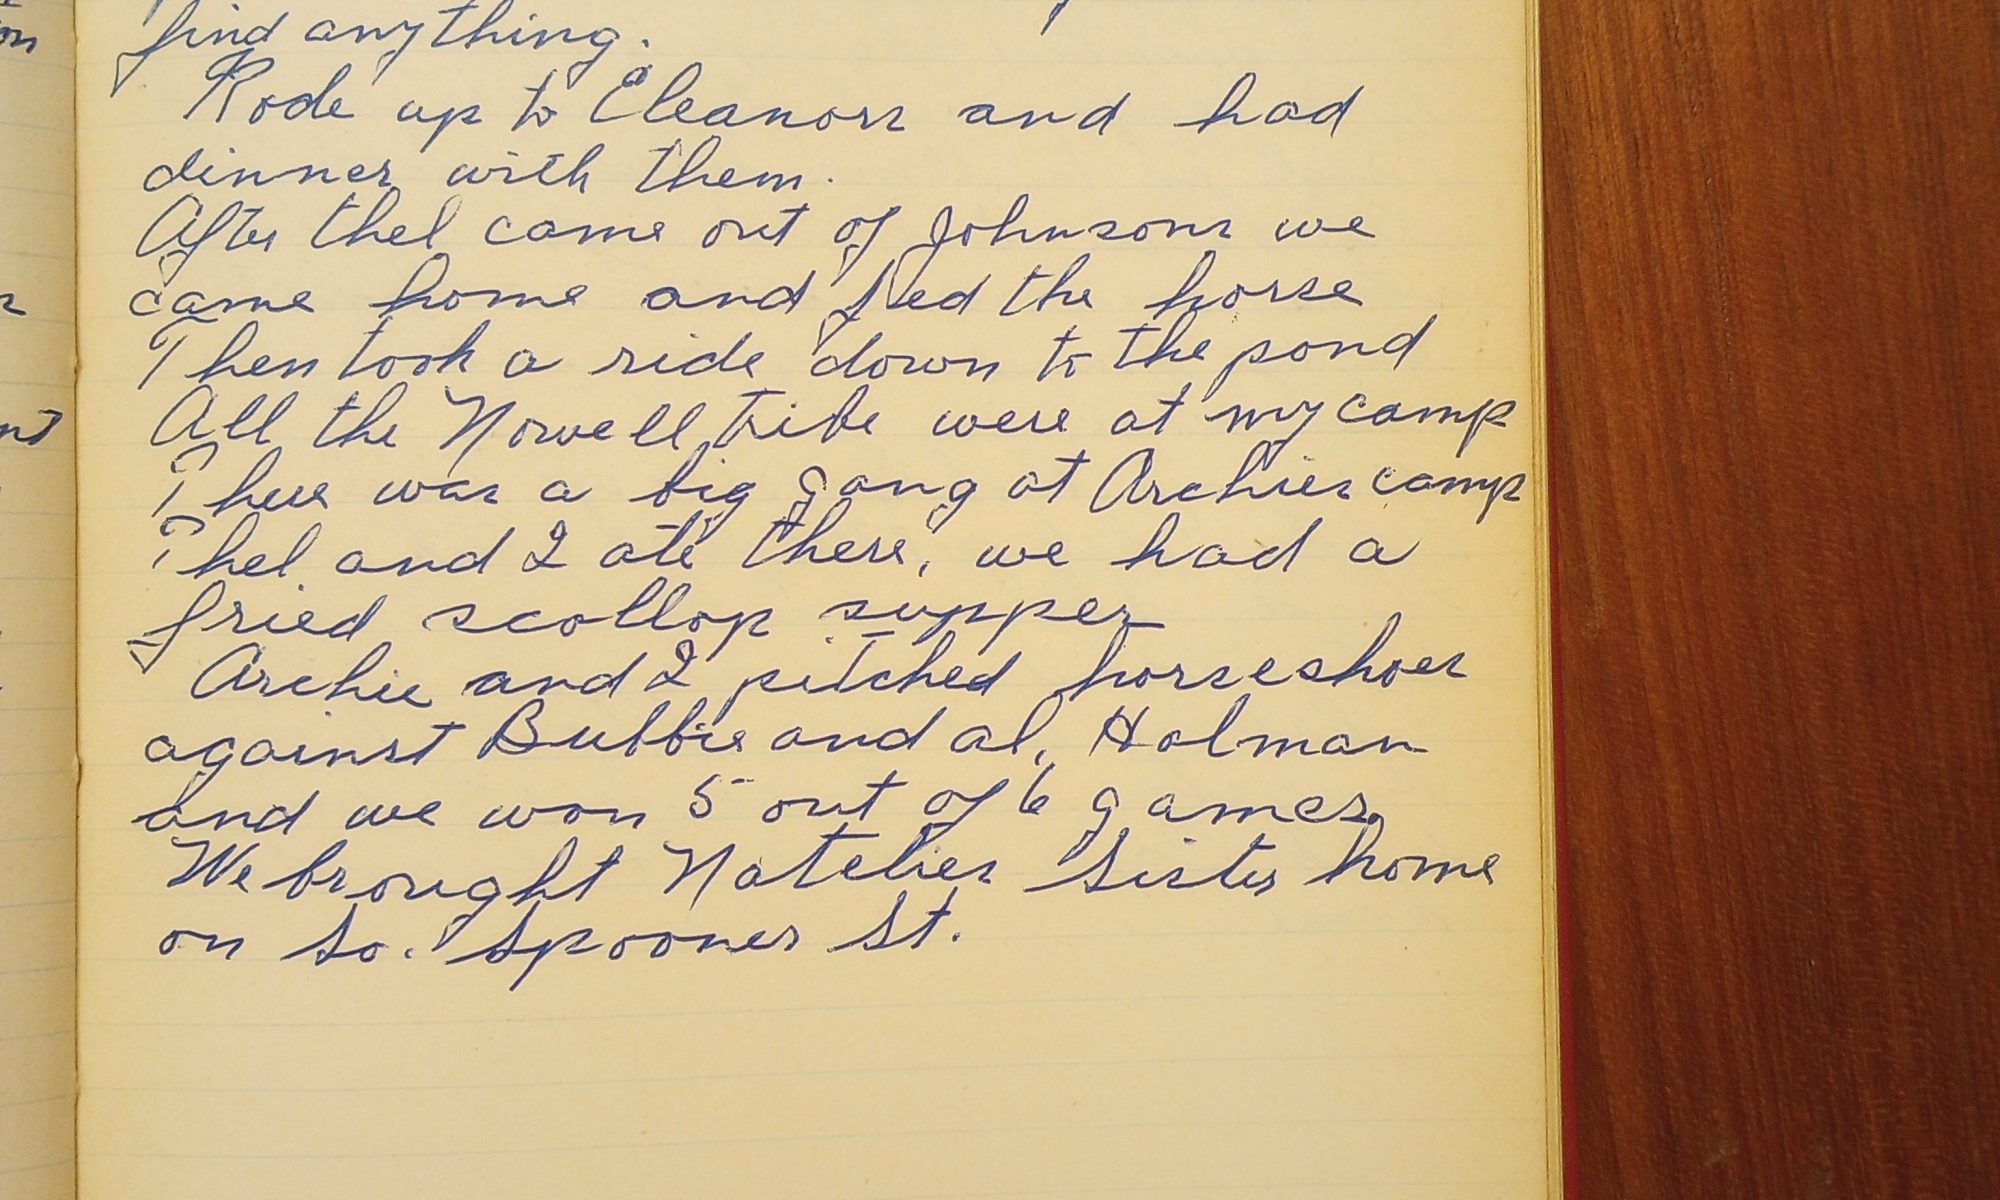 find anything.
Rode up to Eleanors and had
dinner with them.
After thel came out of Johnsons we
came home and fed the horse
Then took a ride down to the pond
All the Nowell tribe were at my camp
There was a big gang at Archies camp
Thel and I ate there, we had a
fried scollop supper
Archie and I pitched horseshoes
against Bubbie and al. Holman
and we won 5 out of 6 games.
We brought Natelies sister home
on So. Spooner St.